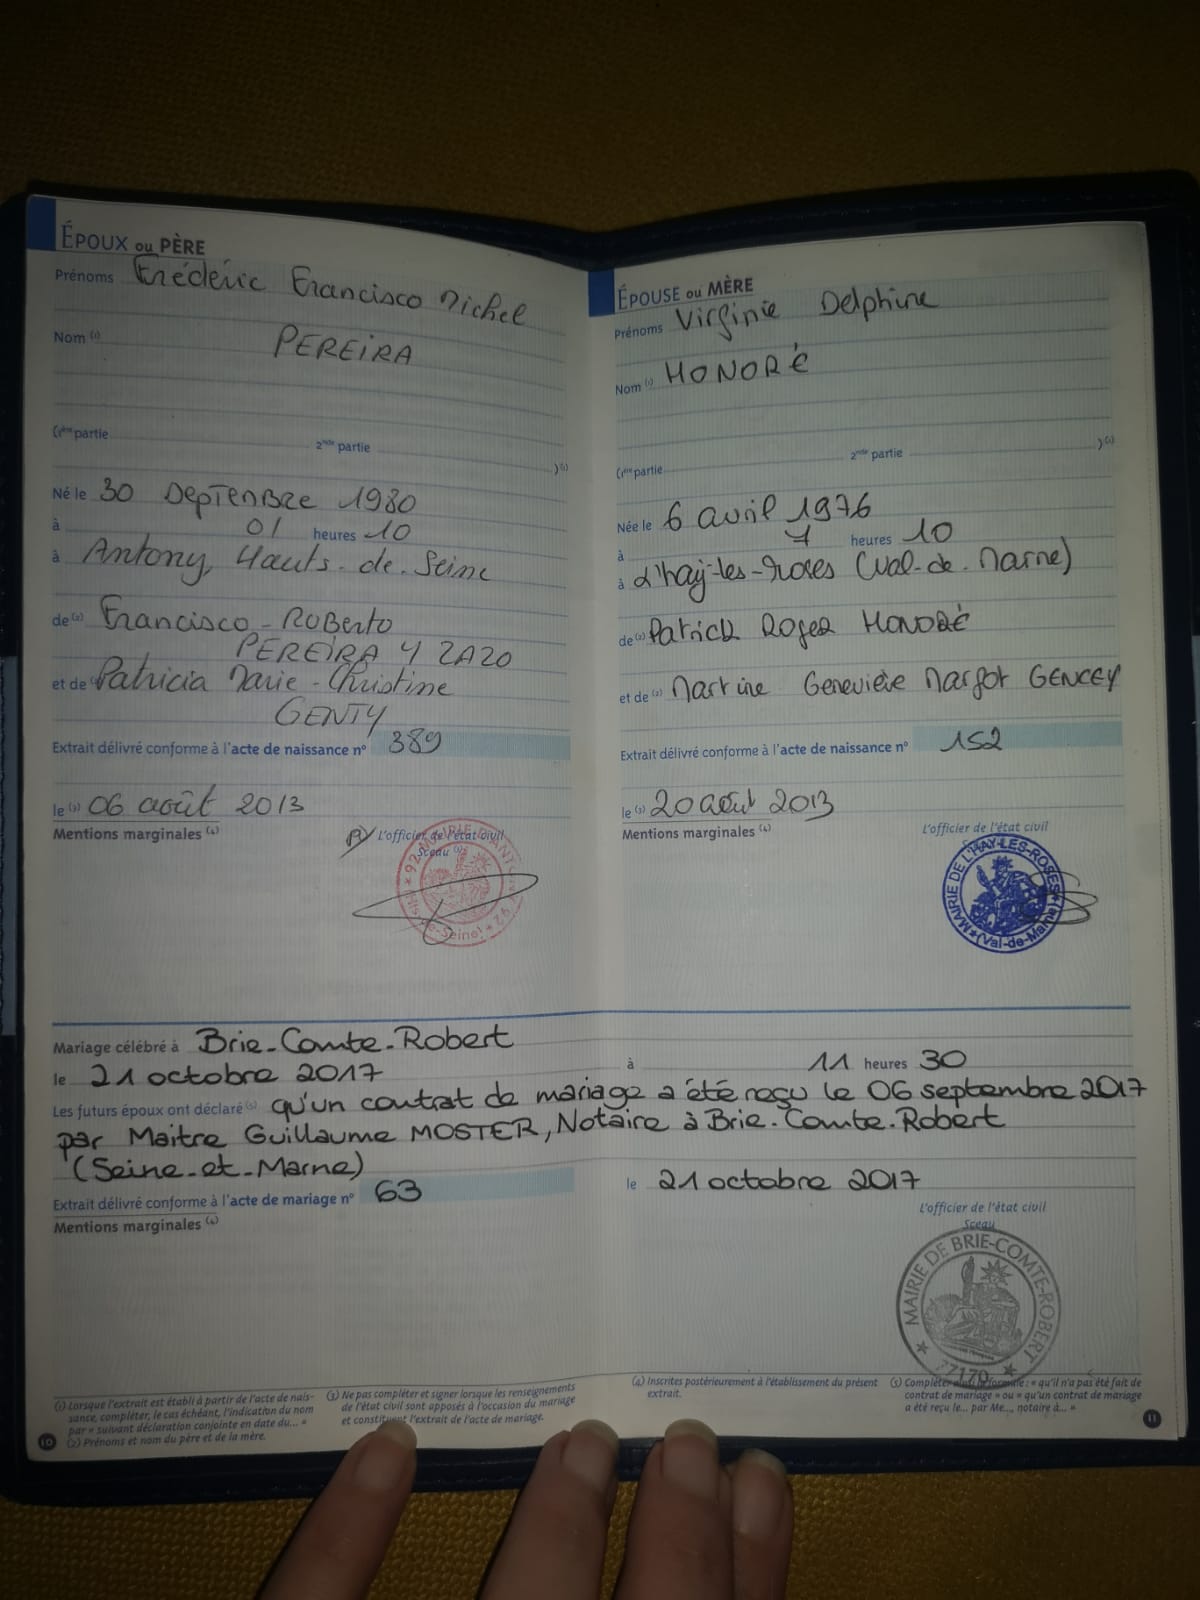 ÉPOUX ou PÈRE
Prénoms Frédéric Francisco Michel
Nom (1) PEREIRA
(1ère partie 2nde partie )(1)
Né le 30 Septembre 1980
à 01 heures 10
à Antony, Hauts-de-Seine
de (2) Francisco-Roberto
PEREIRA Y ZAZO
et de (2) Patricia Marie-Christine
GENTY
Extrait délivré conforme à l'acte de naissance n° 389
le (3) 06 août 2013
Mentions marginales (4)
L'officier de l'état civil
Sceau (3)
ÉPOUSE ou MÈRE
Prénoms Virginie Delphine
Nom (1) HONORÉ
(1ère partie 2nde partie )(1)
Née le 6 avril 1976
à 7 heures 10
à L'haÿ-les-Roses (Val-de-Marne)
de (2) Patrick Roger HONORÉ
et de (2) Martine Geneviève Margot GENCEY
Extrait délivré conforme à l'acte de naissance n° 152
le (3) 20 août 2013
Mentions marginales (4)
L'officier de l'état civil
MAIRIE DE L'HAY-LES-ROSES
(Val-de-Marne)
Mariage célébré à Brie-Comte-Robert
le 21 octobre 2017 à 11 heures 30
Les futurs époux ont déclaré (5) qu'un contrat de mariage a été reçu le 06 septembre 2017
par Maitre Guillaume MOSTER, Notaire à Brie-Comte-Robert
(Seine-et-Marne)
Extrait délivré conforme à l'acte de mariage n° 63
le 21 octobre 2017
Mentions marginales (4)
L'officier de l'état civil
Sceau
MAIRIE DE BRIE-COMTE-ROBERT
77170
(1) Lorsque l'extrait est établi à partir de l'acte de nais-
sance, compléter, le cas échéant, l'indication du nom
par « suivant déclaration conjointe en date du... »
(2) Prénoms et nom du père et de la mère.
(3) Ne pas compléter et signer lorsque les renseignements
de l'état civil sont apposés à l'occasion du mariage
et constituent l'extrait de l'acte de mariage.
(4) Inscrites postérieurement à l'établissement du présent
extrait.
(5) Compléter formule : « qu'il n'a pas été fait de
contrat de mariage » ou « qu'un contrat de mariage
a été reçu le... par Me..., notaire à... »
10
11